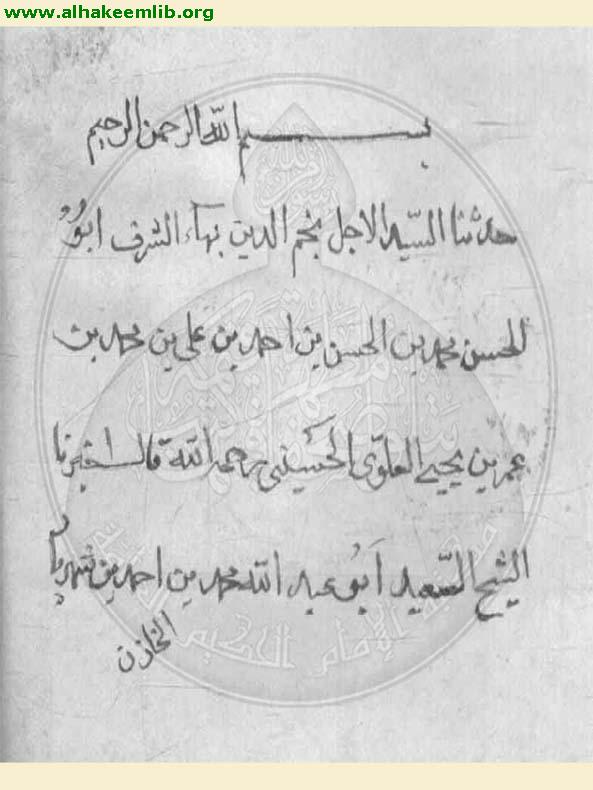 www.alhakeemlib.org
بسم الله الرحمن الرحيم
حدثنا السيد الاجل نجم الدين بهاء الشرف ابو
الحسن محمد بن الحسن بن احمد بن علي بن محمد بن
عمر بن يحيى العلوي الحسيني رحمه الله قال اخبرنا
الشيخ السعيد ابو عبد الله محمد بن احمد بن شهريار
الخازن